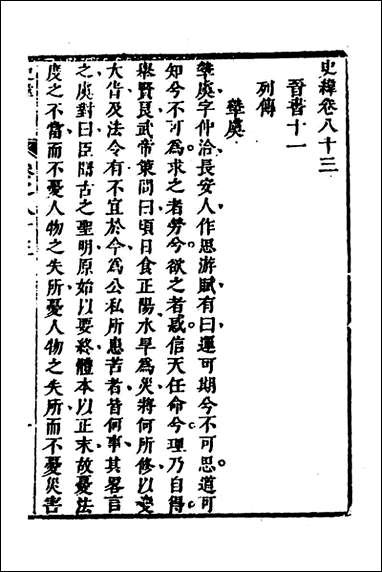 史緯卷八十三
晉書十一
列傳
摯虞
摯虞字仲洽長安人作思游賦有曰運可期兮不可思道可
知兮不可為求之者勞兮欲之者惑信天任命兮理乃自得
舉賢良武帝策問曰頃日食正陽水旱為災將何所修以變
大眚及法令有不宜於今為公私所患苦者皆何事其畧言
之虞對曰臣聞古之聖明原始以要終體本以正末故憂法
度之不當而不憂人物之失所憂人物之失所而不憂災害